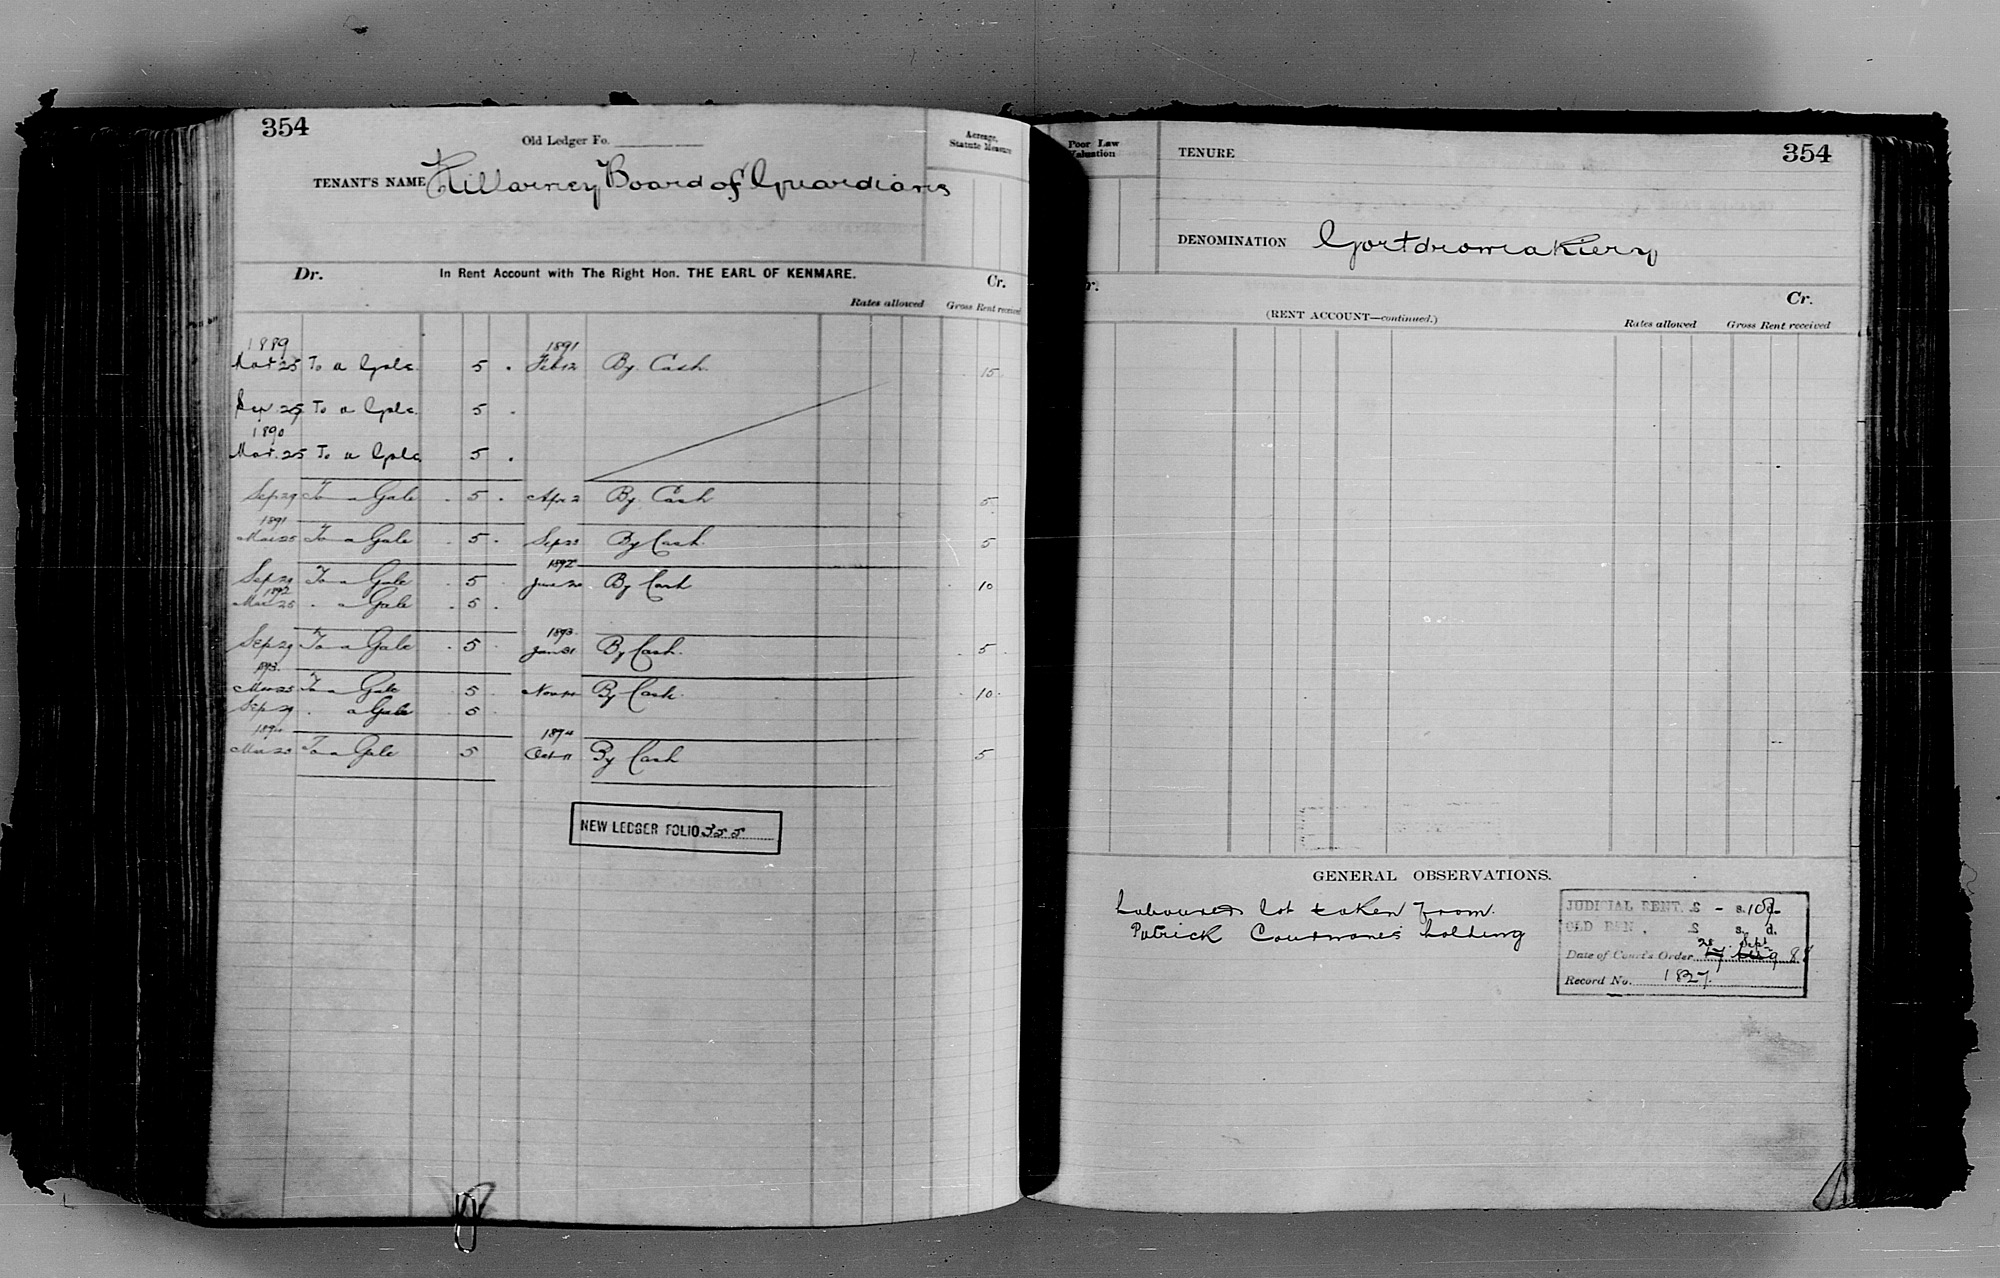 354
Old Ledger Fo.
Acreage, Statute Measure
TENANT'S NAME Killarney Board of Guardians
Dr. In Rent Account with The Right Hon. THE EARL OF KENMARE. Cr.
Rates allowed Gross Rent received
1889 1891
Mar 25 To a Gale 5 . Feb 12 By Cash 15
Sep. 29 To a Gale 5 .
1890
Mar. 25 To a Gale 5 .
Sep 29 To a Gale . 5 . Apr 2 By Cash 5
1891
Mar 25 To a Gale . 5 . Sep 23 By Cash 5
1892
Sep 29 To a Gale . 5 . June 20 By Cash 10
1892
Mar 25 . a Gale . 5 .
1893
Sep 29 To a Gale . 5 . Jan 31 By Cash 5
1893
Mar 25 To a Gale 5 Nov 14 By Cash 10
Sep 29 . a Gale 5
1894 1894
Mar 25 To a Gale 5 Oct 11 By Cash 5
NEW LEDGER FOLIO 355
Poor Law Valuation
TENURE
354
DENOMINATION Gortdromakiery
Cr.
(RENT ACCOUNT—continued.)
Rates allowed Gross Rent received
GENERAL OBSERVATIONS.
Labourers lot taken from
Patrick Courmane's holding
JUDICIAL RENT £ - s. 10 d. -
OLD REN . £ s. d.
Date of Court's Order 20 Sept
Record No. 1827